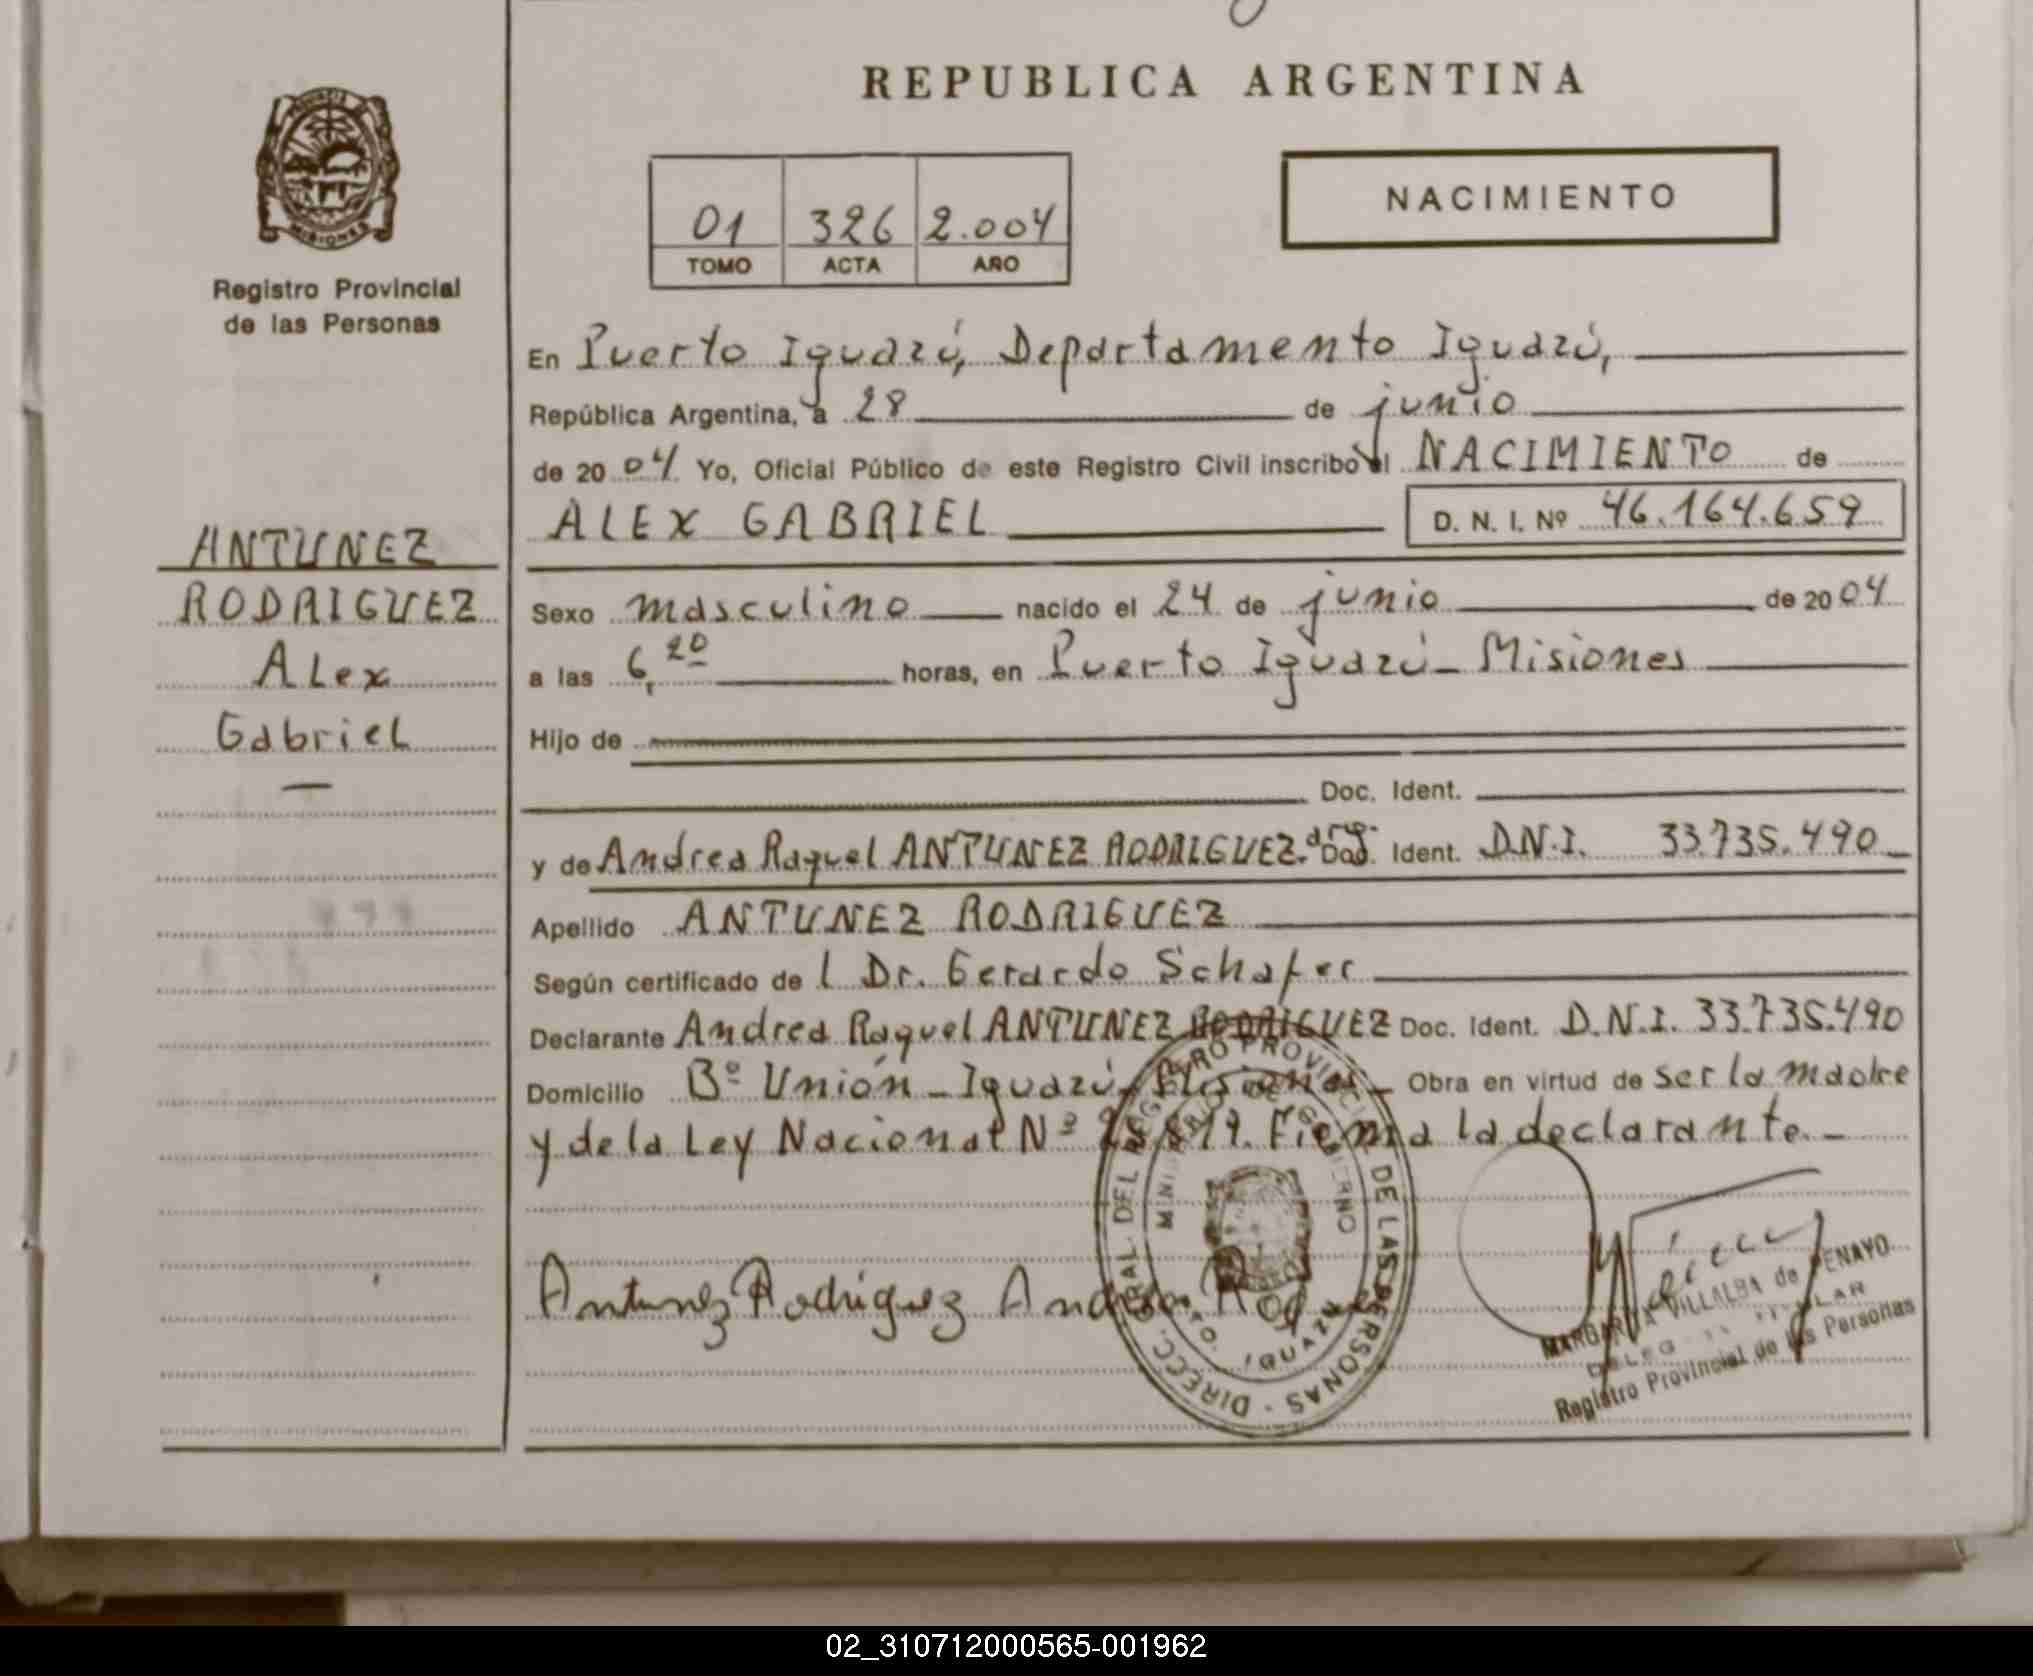 REPUBLICA ARGENTINA
PROVINCIA DE
MISIONES
Registro Provincial
de las Personas
01 326 2.004
TOMO ACTA AÑO
NACIMIENTO
En Puerto Iguazú, Departamento Iguazú,
República Argentina, a 28 de junio
de 2004 Yo, Oficial Público de este Registro Civil inscribo el NACIMIENTO de
ALEX GABRIEL D. N. I. Nº 46.164.659
ANTUNEZ
RODRIGUEZ
ALex
GabrieL
Sexo masculino nacido el 24 de junio de 2004
a las 6,20 horas, en Puerto Iguazú - Misiones
Hijo de
Doc. Ident.
y de Andrea Raquel ANTUNEZ RODRIGUEZ. Doc. Ident. D.N.I. 33.735.490
Apellido ANTUNEZ RODRIGUEZ
Según certificado de l Dr. Gerardo Schafer
Declarante Andrea Raquel ANTUNEZ RODRIGUEZ Doc. Ident. D.N.I. 33.735.490
Domicilio Bº Unión - Iguazú, Misiones - Obra en virtud de ser la madre
y de la Ley Nacional Nº Firma la declarante. -
Antunez Rodriguez Andrea
DIRECC. GRAL. DEL REGISTRO PROVINCIAL DE LAS PERSONAS
MINISTERIO DE GOBIERNO
IGUAZU
MARGARITA VILLALBA de PENAYO
DELEGADA TITULAR
Registro Provincial de las Personas
02_310712000565-001962